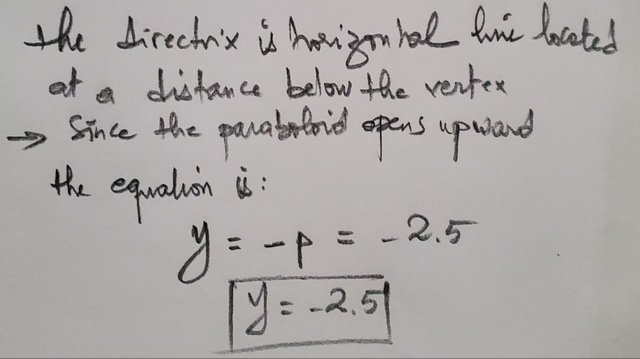 the directrix is horizontal line located
at a distance below the vertex
→ Since the paraboloid opens upward
the equation is:
y = -p = -2.5
y = -2.5